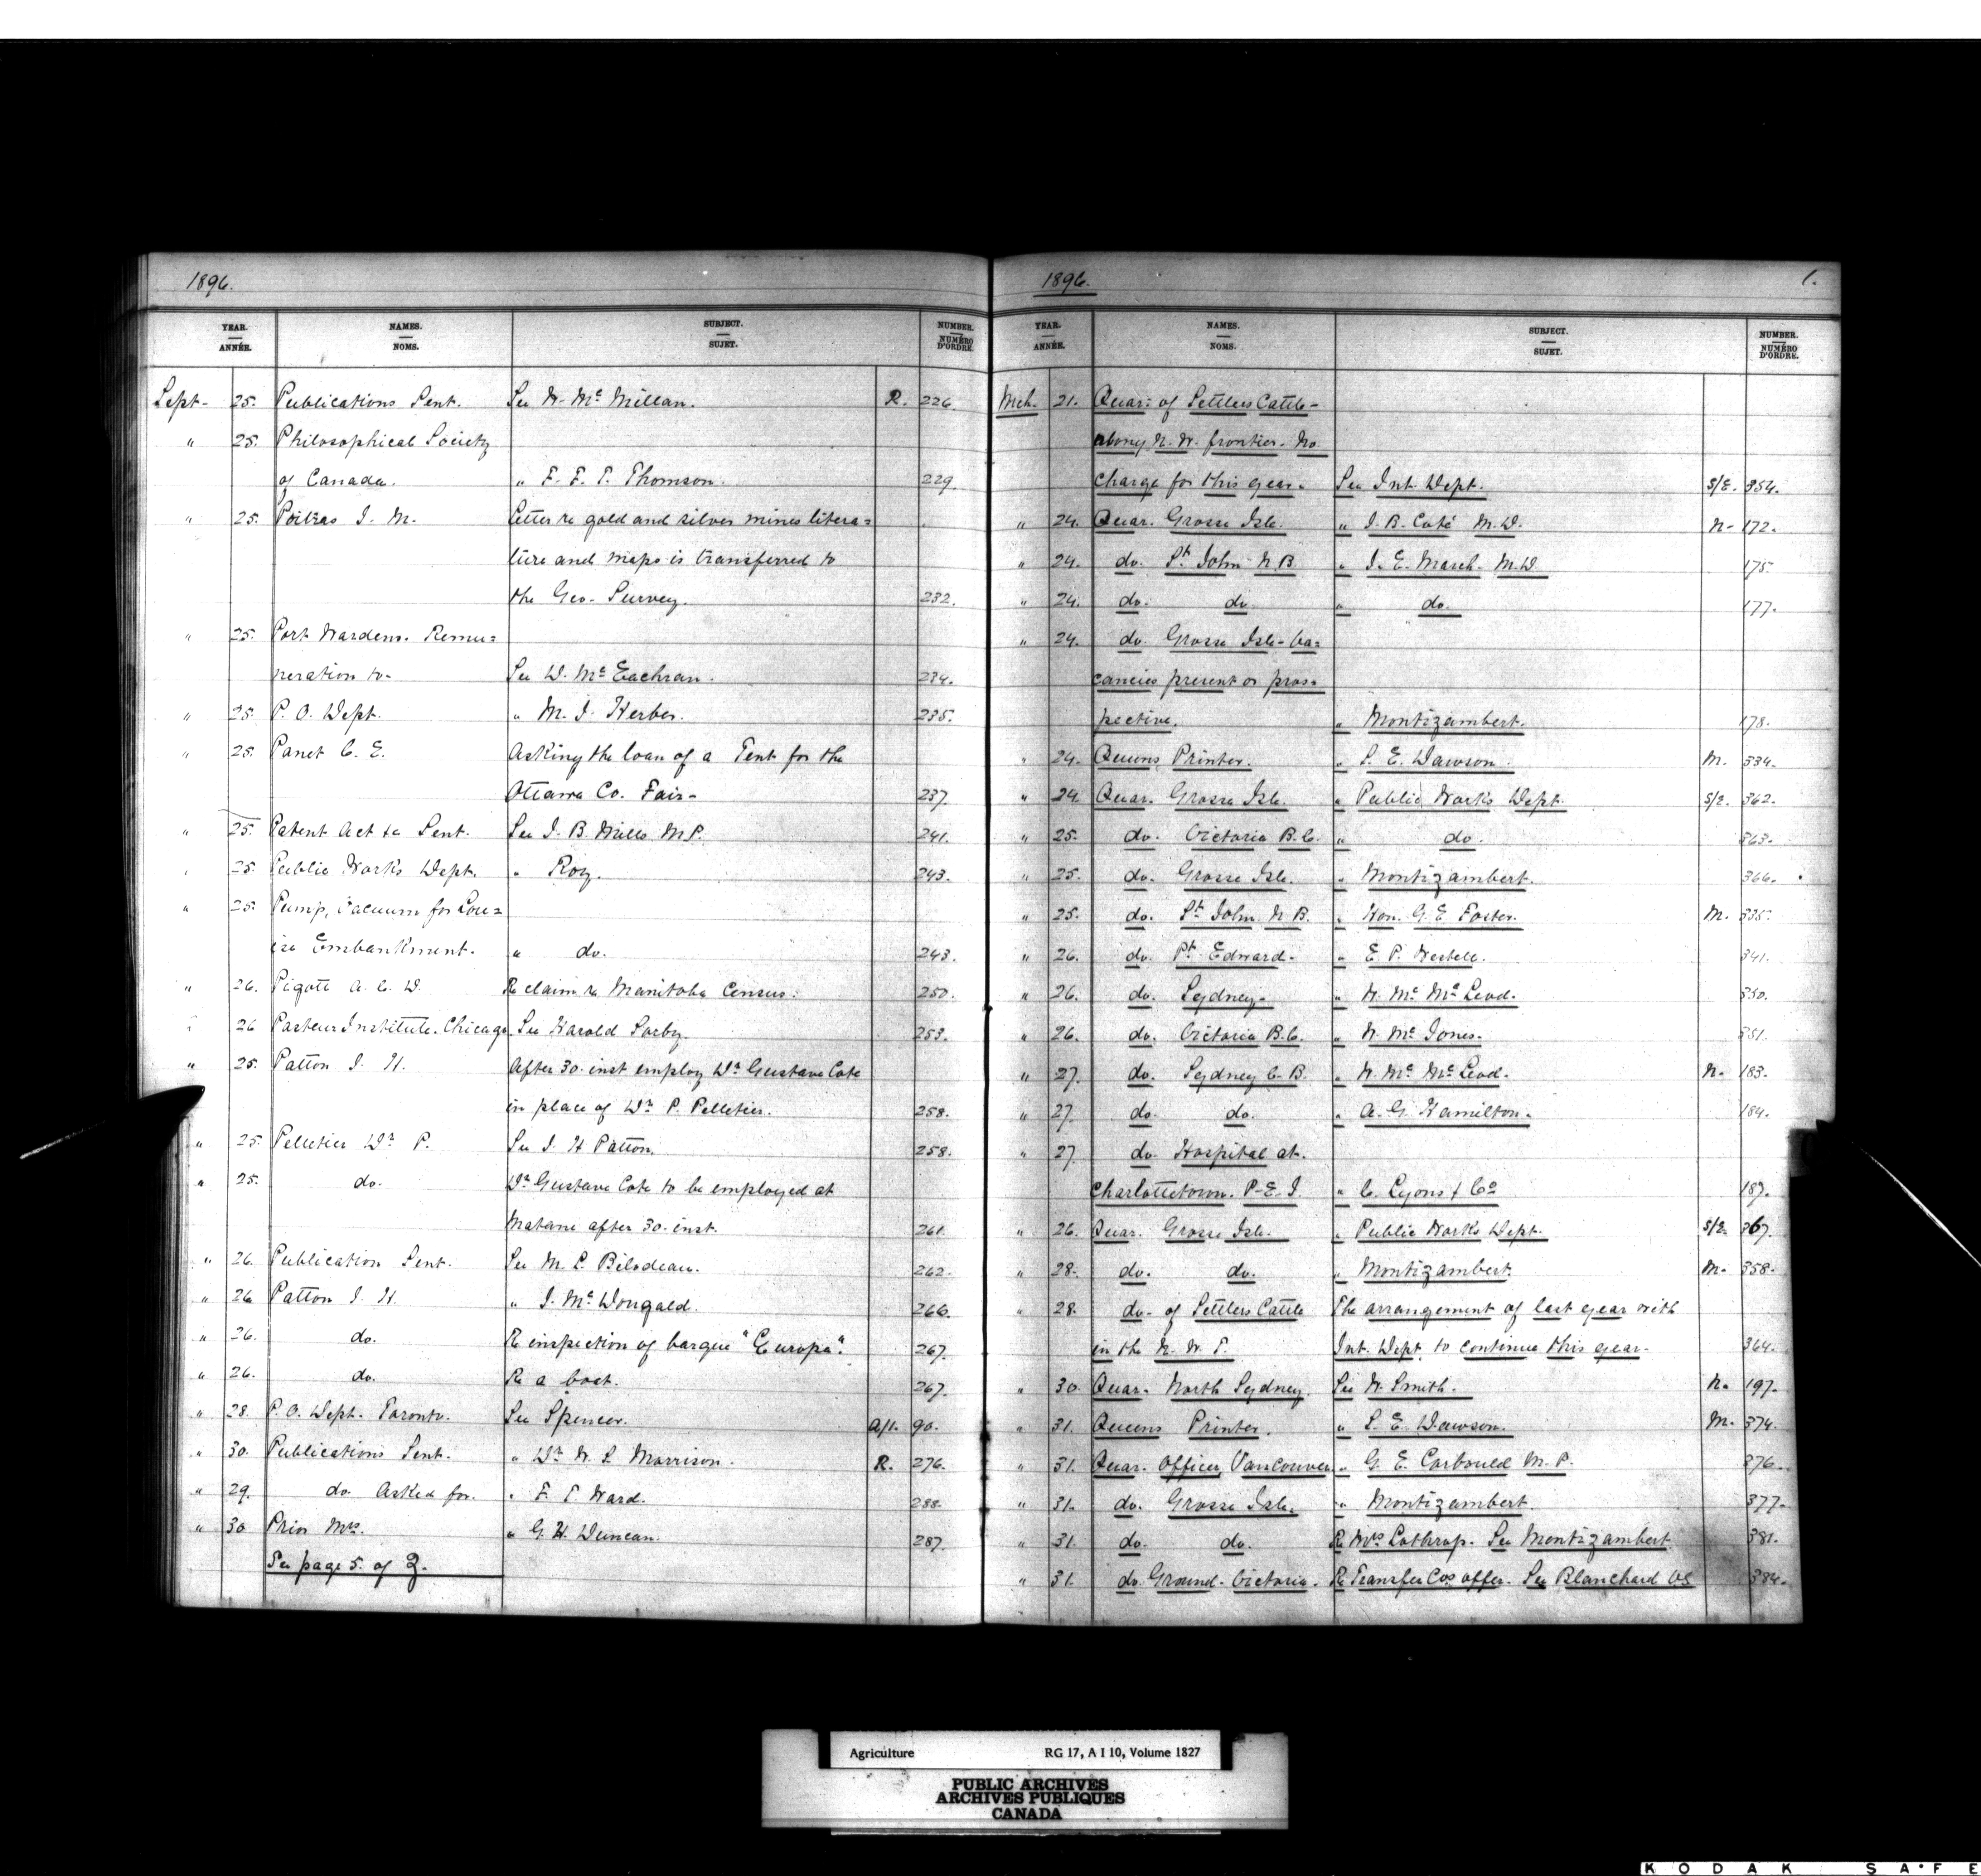 1896.
YEAR. ANNÉE. NAMES. NOMS. SUBJECT. SUJET. NUMBER. NUMÉRO D'ORDRE.
Sept- 25. Publications Sent. See W. Mc Millan. R. 226.
" 25. Philosophical Society
of Canada. " F. F. T. Thomson. 229.
" 25. Poitras J. M. Letter re gold and silver mines litera=
ture and maps is transferred to
the Geo- Survey. 232.
" 25. Port Wardens. Remu=
neration to- See D. Mc Eachran. 234.
" 25. P. O. Dept. " M. J. Kerber. 235.
" 25. Panet C. E. Asking the loan of a Tent for the
Ottawa Co. Fair- 237.
" 25. Patent Act &c Sent. See J. B. Mills M.P. 241.
" 25. Public Works Dept. " Roy. 243.
" 25. Pump, Vacuum for Lou=
ise Embankment. " do. 243.
" 26. Pigott A. C. D. Re claim re Manitoba Census. 250.
" 26 Pasteur Institute. Chicago. See Harold Sorby. 253.
" 25. Patton J. H. After 30. inst employ Dr Gustave Cote
in place of Dr P. Pelletier. 258.
" 25. Pelletier Dr P. See J. H Patton. 258.
" 25. do. Dr Gustave Cote to be employed at
Matane after 30. inst. 261.
" 26. Publication Sent. See M. L. Bilodeau. 262.
" 26 Patton J. H. " J. Mc Dougald. 266.
" 26. do. Re inspection of barque "Europa". 267.
" 26. do. Re a boat. 267.
" 28. P. O. Dept. Toronto. See Spencer. A/1. 90.
" 30. Publications Sent. " Dr W. S. Morrison. R. 276.
" 29. do Asked for. " F. T. Ward. 288.
" 30 Prior Mrs. " G. H. Duncan. 287.
See page 5. of Q.
1896. 1.
YEAR. ANNÉE. NAMES. NOMS. SUBJECT. SUJET. NUMBER. NUMÉRO D'ORDRE.
Mch. 21. Quar: of Settlers Cattle-
along N. W. frontier. No
charge for this year. See Int. Dept. S/2. 354.
" 24. Quar. Grosse Isle. " J. B. Coté M.D. N- 172.
" 24. do. St John N.B. " J. E. March. M.D. 175.
" 24. do. do " do. 177.
" 24. do. Grosse Isle- Va=
cancies present or pros=
pective. " Montizambert. 178.
" 24. Queens Printer. " S. E. Dawson. M. 334.
" 24 Quar. Grosse Isle. " Public Works Dept. S/2. 362.
" 25. do. Victoria B.C. " do. 363.
" 25. do. Grosse Isle. " Montizambert. 366.
" 25. do. St John N B. " Hon. G. E Foster. M. 335.
" 26. do. Pt Edward- " E. P. Westell. 341.
" 26. do. Sydney- " W. Mc McLeod. 350.
" 26. do. Victoria B.C. " W. Mc Jones. 351.
" 27. do. Sydney C. B. " W. Mc McLeod. N- 183.
" 27. do. do. " A. G. Hamilton. 184.
" 27. do. Hospital at.
Charlottetown. P.E.I. " C. Lyons & Co 187.
" 26. Quar. Grosse Isle. " Public Works Dept. S/2 367.
" 28. do. do. " Montizambert. M- 358.
" 28. do- of Settlers Cattle The arrangement of last year with
in the N. W. T. Int. Dept. to continue this year. 364.
" 30. Quar- North Sydney. See W. Smith. N. 197.
" 31. Queens Printer. " S. E. Dawson. M. 374.
" 31. Quar. Officer, Vancouver " G. E. Corbould M. P. 376.
" 31. do. Grosse Isle. " Montizambert. 377.
" 31. do. do. Re Mrs Lothrop. See Montizambert 381.
" 31. do. Ground- Victoria. Re Transfer Cos offer. See Blanchard VS 384.
Agriculture RG 17, A I 10, Volume 1827
PUBLIC ARCHIVES
ARCHIVES PUBLIQUES
CANADA
KODAK SAFE